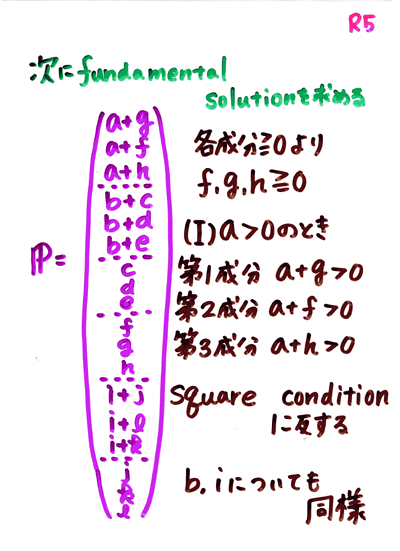 R5
次にfundamental
solutionを求める
P=
a+g
a+f
a+h
b+c
b+d
b+e
c
d
e
f
g
h
i+j
i+l
i+k
j
k
l
各成分≧0より
f,g,h≧0
(I)a>0のとき
第1成分 a+g>0
第2成分 a+f>0
第3成分 a+h>0
square condition
に反する
b,iについても
同様